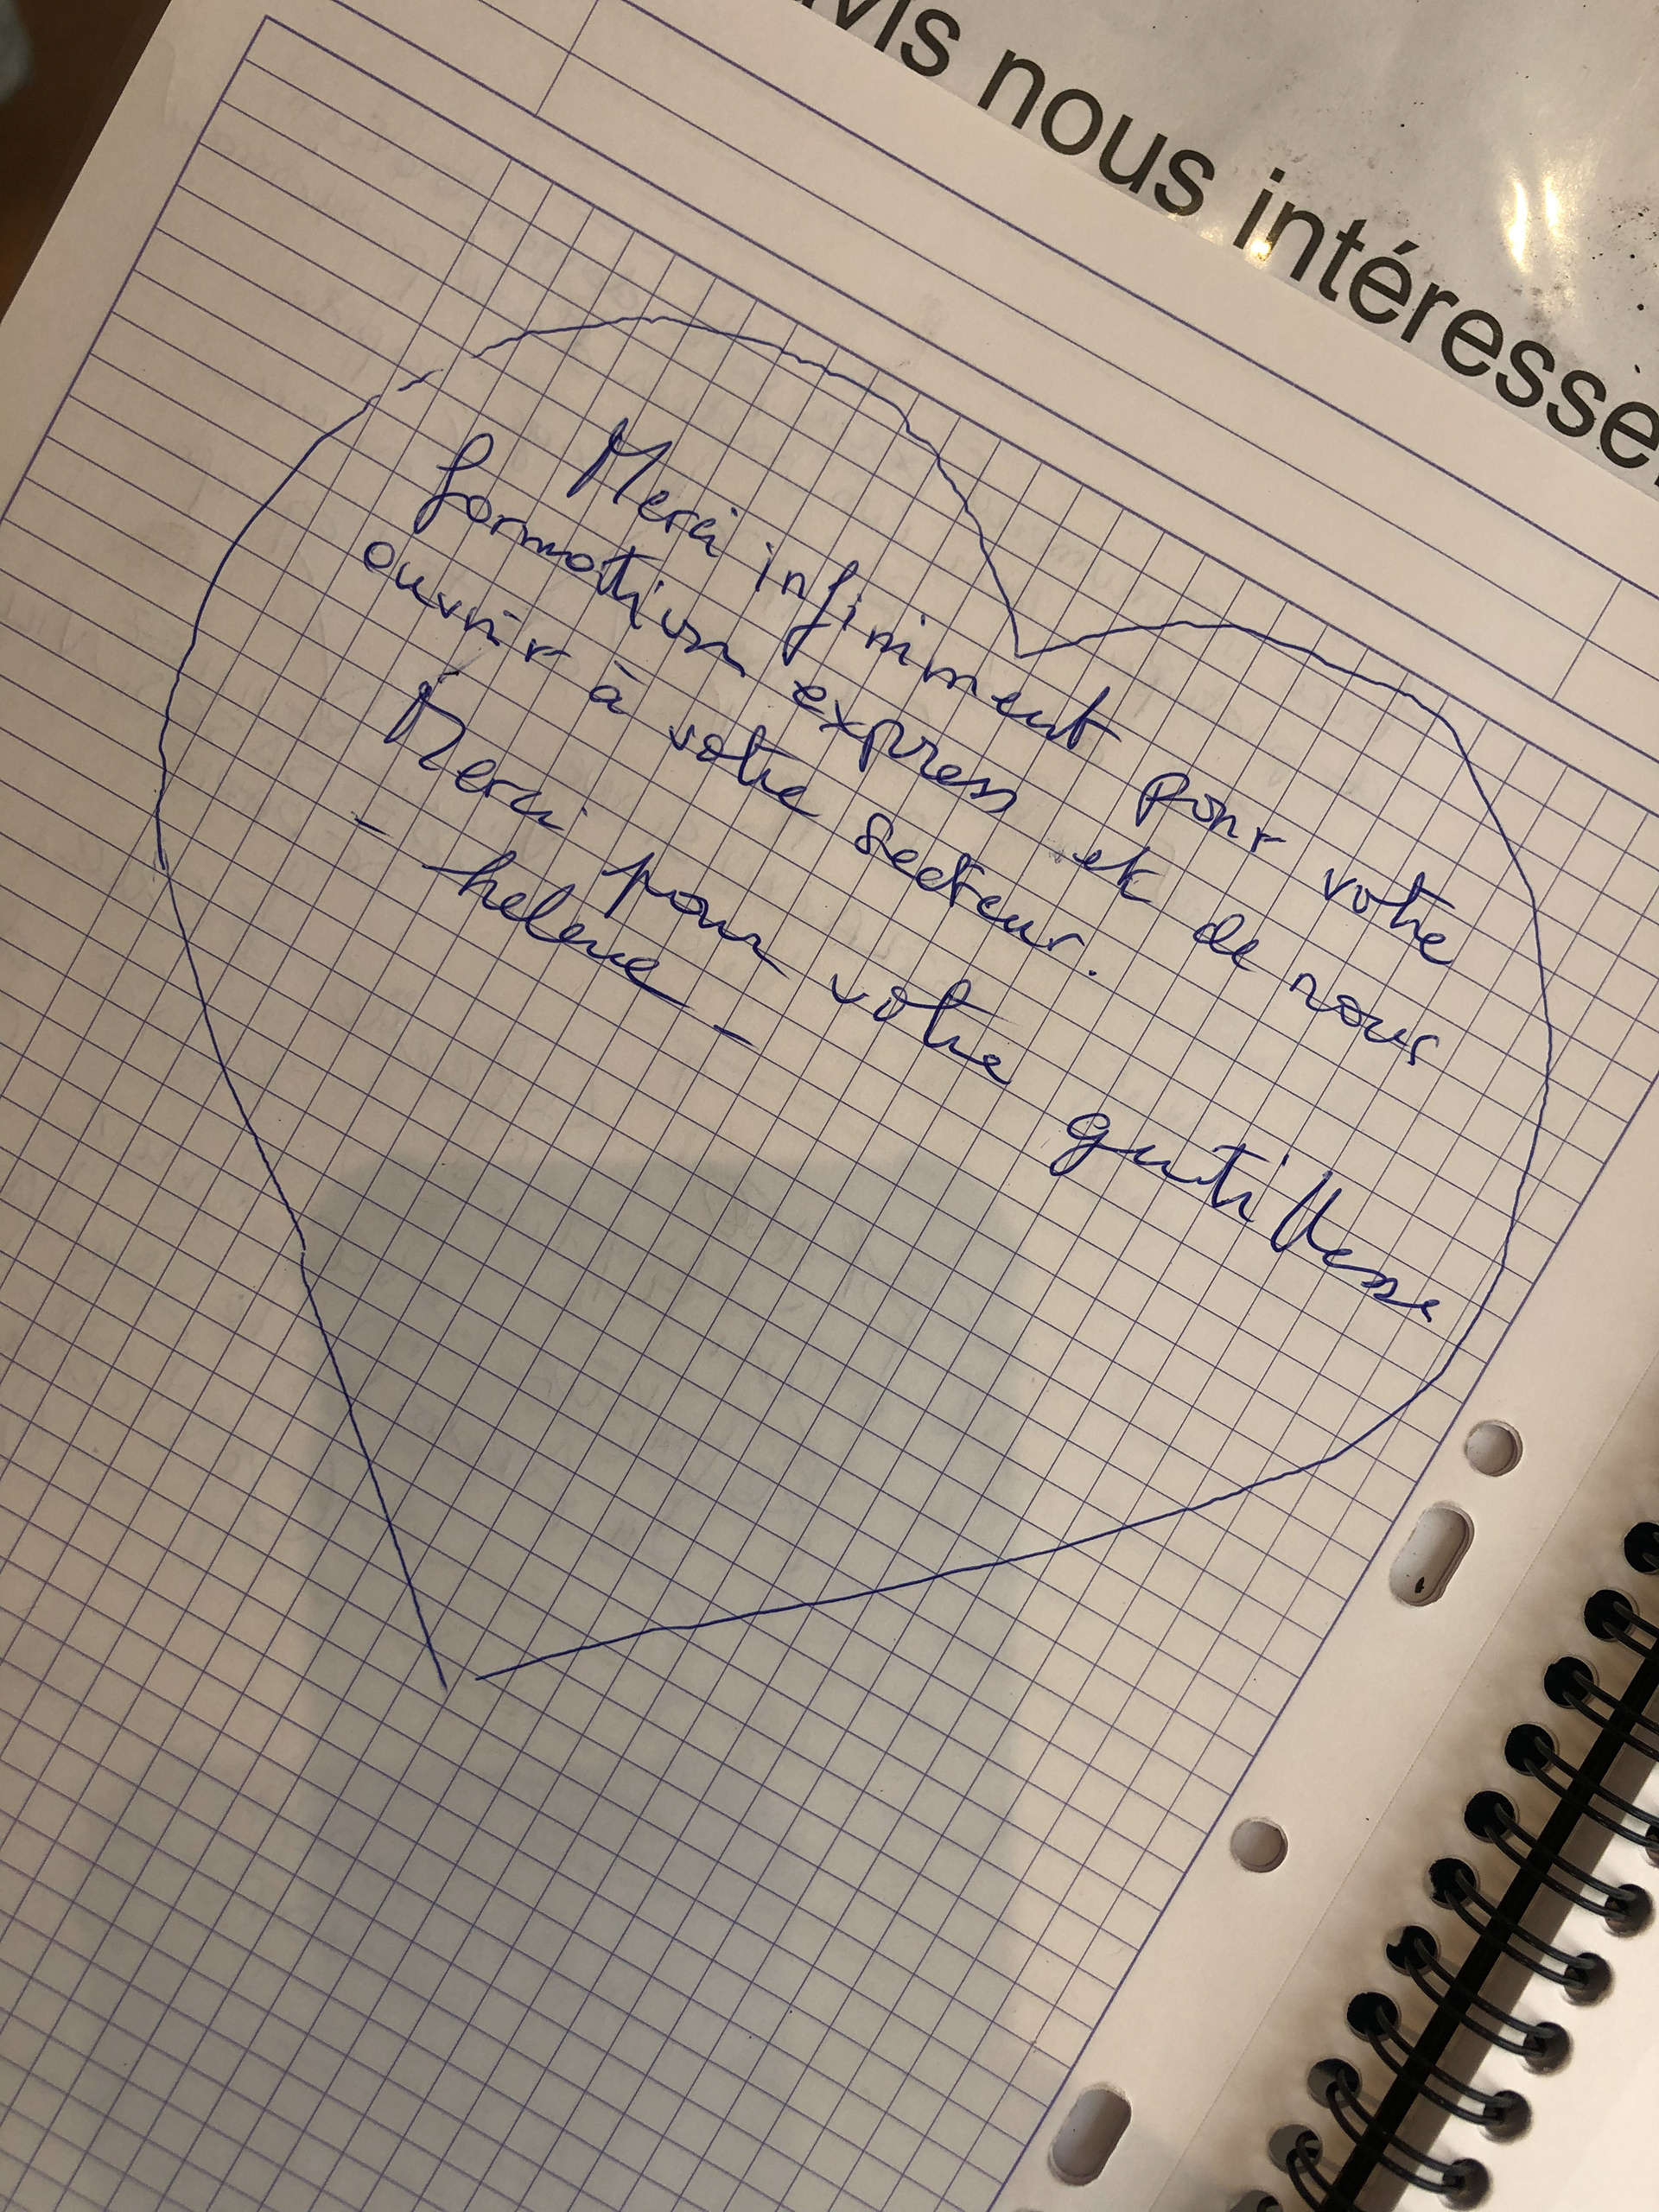 avis nous intéresse
Merci infiniment pour votre
formation express et de nous
ouvrir à votre secteur.
Merci pour votre gentillesse
- helene -